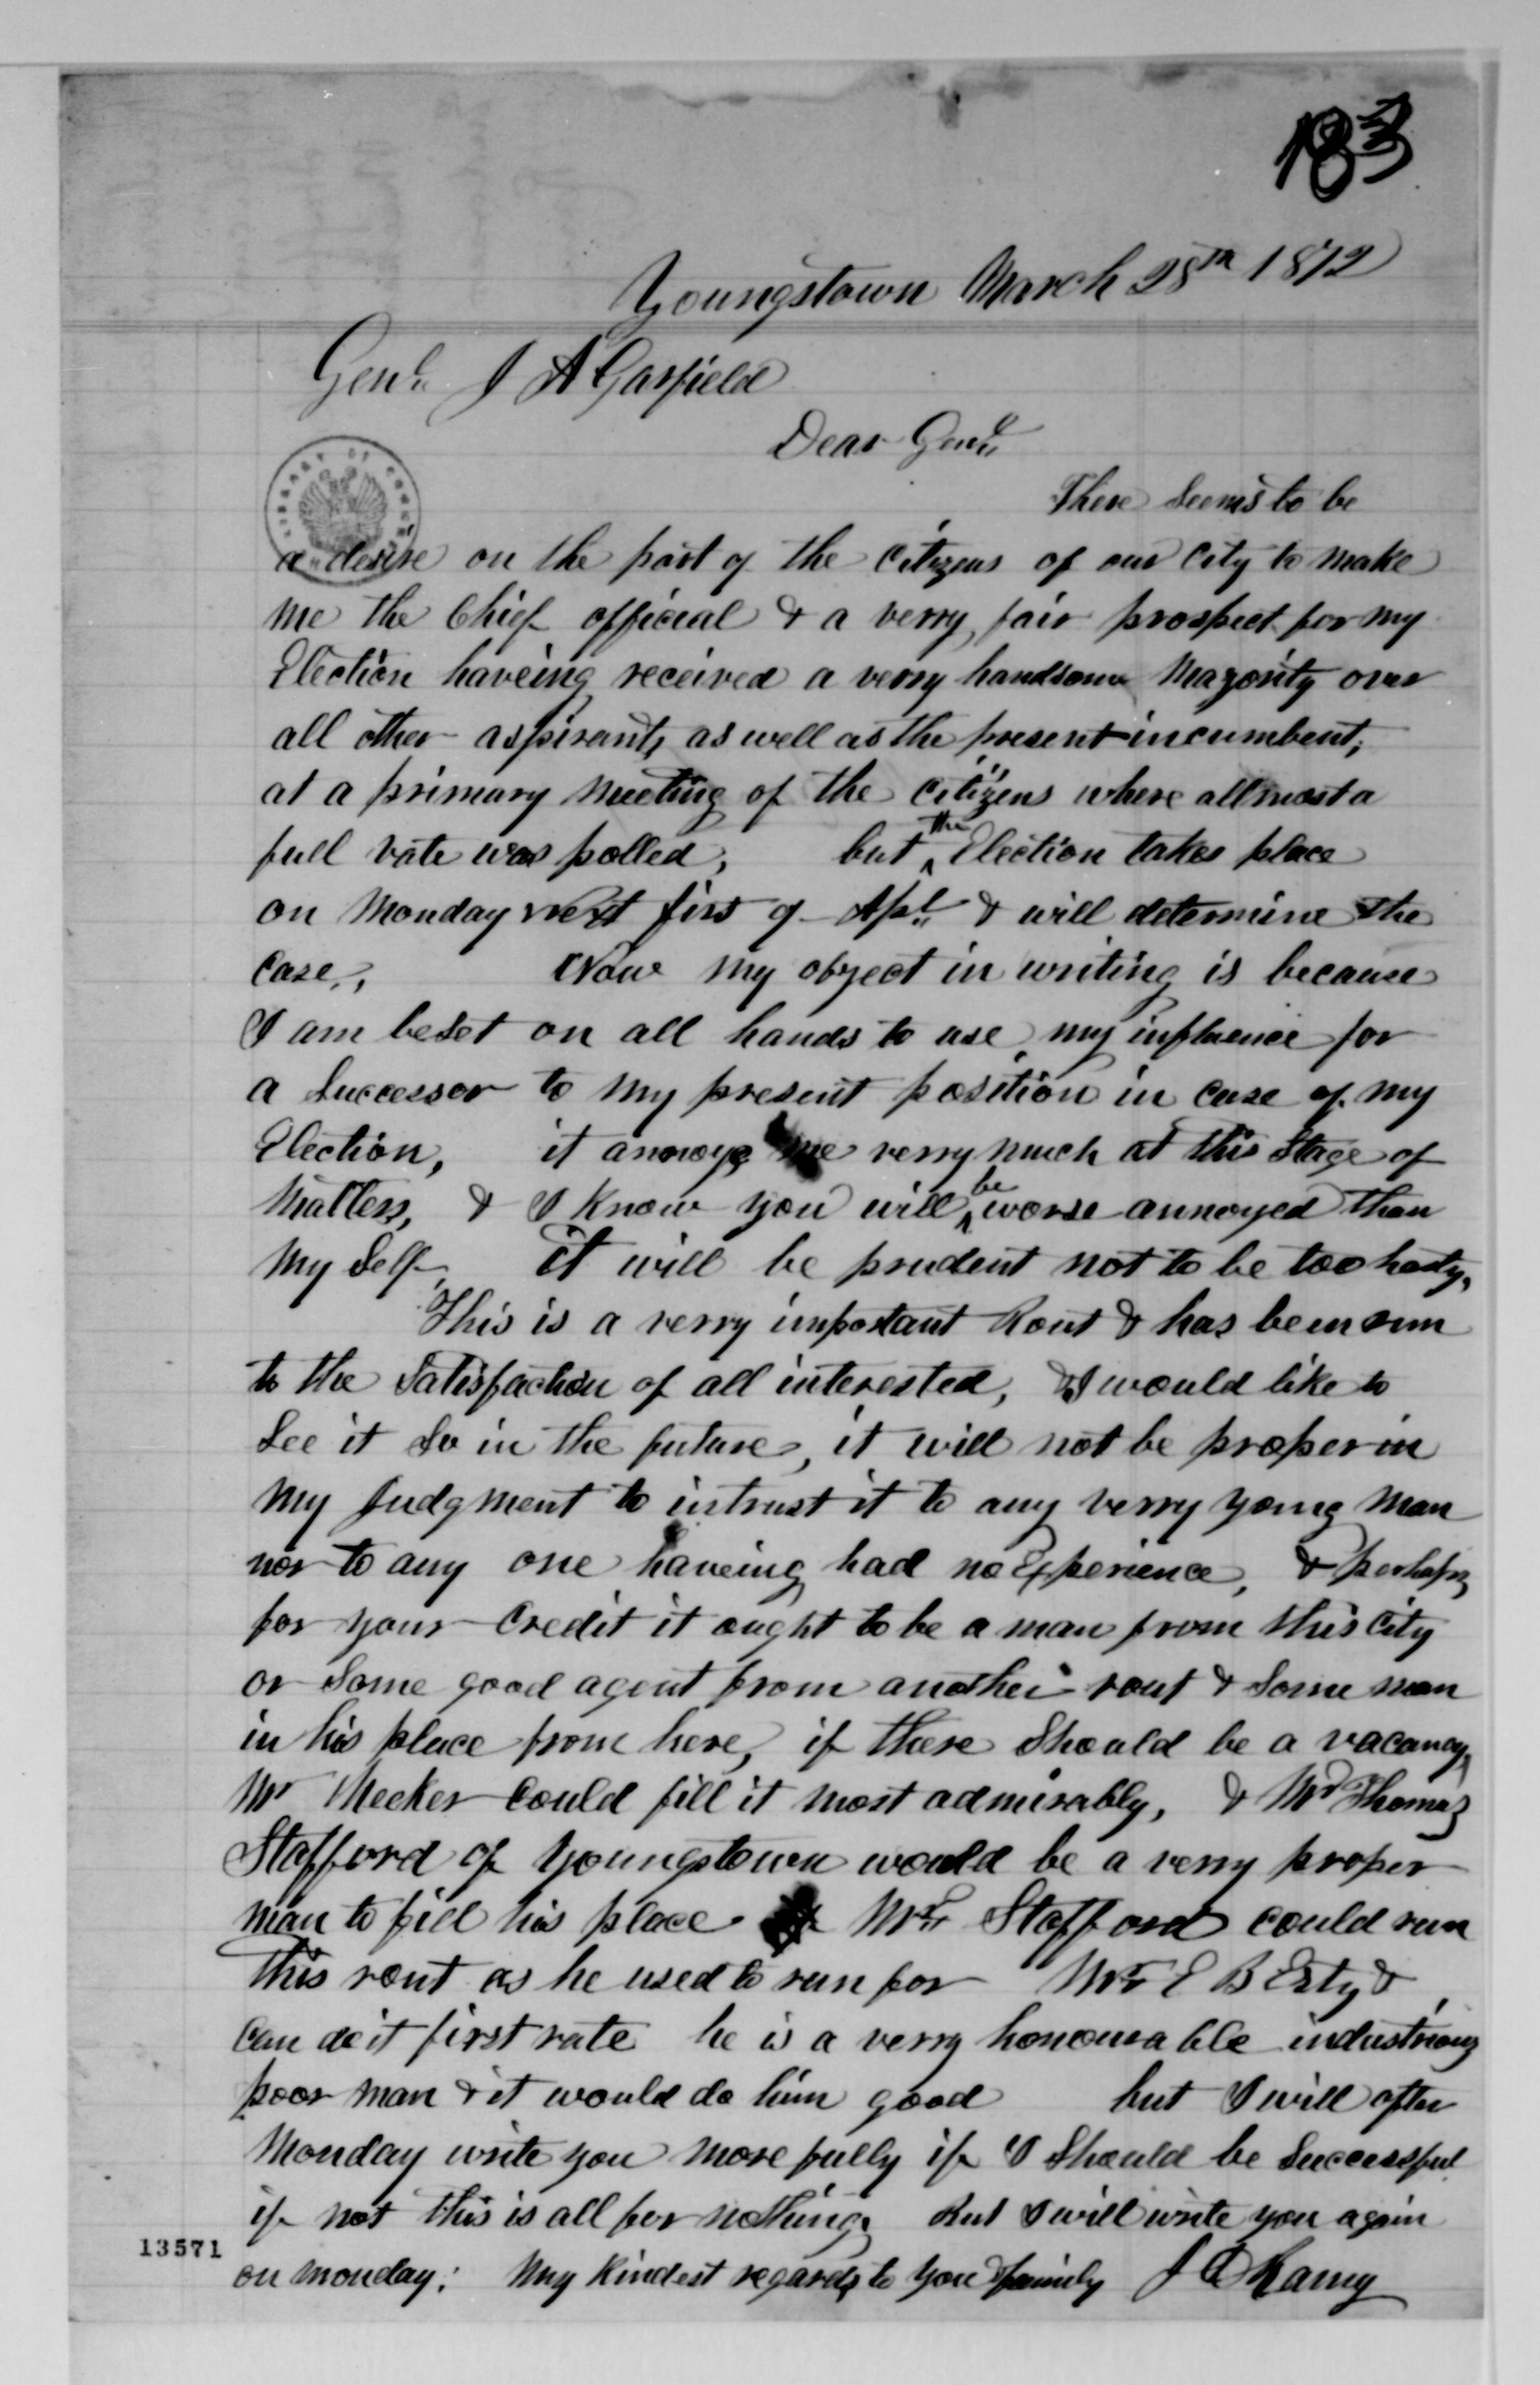 183
Youngstown March 28th 1872
Genl. J A Garfield
Dear Genl.
There Seems to be
a desire on the part of the Citizens of our City to make
me the Chief official & a verry fair prospect for my
Election haveing received a verry handsome Majority over
all other aspirants as well as the present incumbent,
at a primary Meeting of the Citizens where allmost a
full vote was polled, but the Election takes place
on Monday next first of Apl. & will determine the
Case, Now my object in writing is because
I am beset on all hands to use my influence for
a Successor to my present position in Case of my
Election, it annoys me verry much at this Stage of
Matters, & I Know you will be worse annoyed than
my Self, it will be prudent not to be too hasty,
This is a verry important Rout & has been run
to the Satisfaction of all interested, & I would like to
See it So in the future, it will not be proper in
my Judgment to intrust it to any verry young man
nor to any one haveing had no Experience, & perhaps
for your Credit it ought to be a man from this City
or Some good agent from another rout & Some man
in his place from here, if there Should be a vacancy,
Mr Meeker Could fill it most admirably, & Mr Thomas
Stafford of Youngstown would be a verry proper
man to fill his place Mr. Stafford could run
this rout as he used to run for Mr. E B Esty &
Can do it first rate he is a verry honourable industrious
poor man & it would do him good but I will after
Monday write you more fully if I Should be Successful
if not this is all for nothing, But I will write you again
13571
on Monday; My Kindest regards to you & family J C Raney